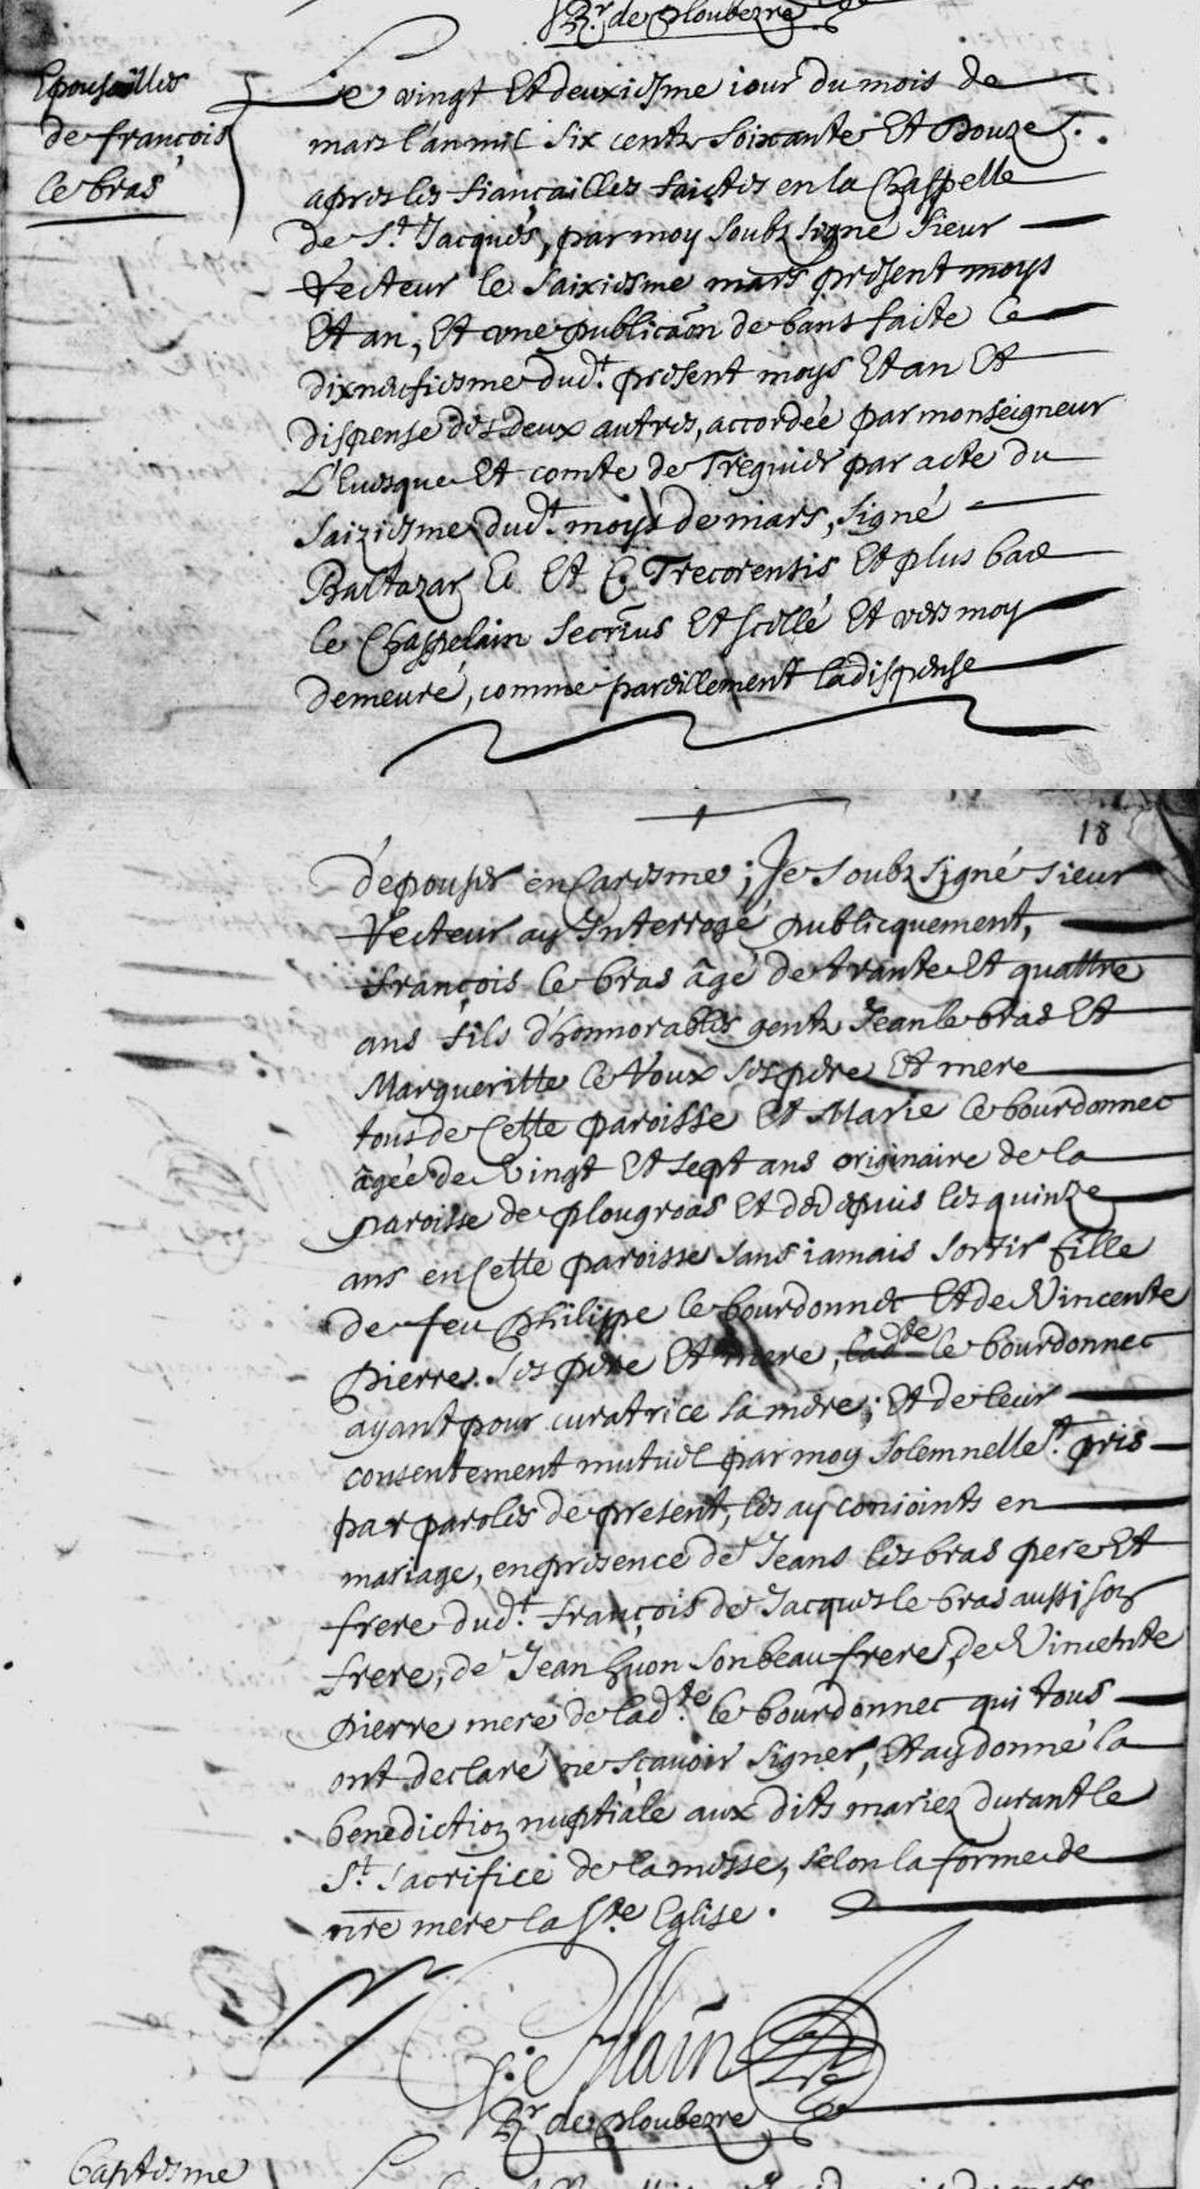 Rr de Ploubezre
Epousailles
de françois
le bras
Le vingt Et deuxiesme iour du mois de
mars l'an mil six centz soixante Et Douze.
apres les fiançailles faictes en la Chappelle
de St Jacques, par moy soubz signé sieur
Recteur le saixiesme mars present moys
Et an, Et une publicaõn de bans faicte le
dixneufiesme dudt present moys Et an Et
dispense des deux autres, accordée par monseigneur
L'Euesque Et comte de Treguier par acte du
saiziesme dudt moys de mars, signé
Baltazar E. Et C. Trecorensis Et plus bas
le Chappelain secrius Et scellé Et vers moy
demeuré, comme pareillement la dispense
18
d'epouser en Caresme; Je soubz signé sieur
Recteur ay Interrogé publicquement,
françois le bras âgé de trante Et quattre
ans fils d'honnorables gentz Jean le bras Et
Margueritte le Roux ses pere Et mere
tous de Cette paroisse Et Marie le bourdonnec
âgée de Vingt Et sept ans originaire de la
paroisse de plougroas Et de depuis les quinze
ans en Cette paroisse sans iamais sortir fille
de feu philippe le bourdonnec Et de Vincente
pierre ses pere Et mere, ladte le bourdonnec
ayant pour curatrice sa mere; Et de leur
consentement mutuel par moy solemnellet pris
par paroles de present, les ay conioints en
mariage, en presence de Jeans les bras pere Et
frere dudt françois de Jacques le bras aussi son
frere, de Jean huon son beau frere, de Vincente
pierre mere de ladte le bourdonnec qui tous
ont declaré ne sçauoir signer, Et ay donné la
benediction nuptiale aux dits mariez durant le
St sacrifice de la messe, selon la forme de
nre mere la Ste Eglise.
Alain
Rr de Ploubezre
Baptesme